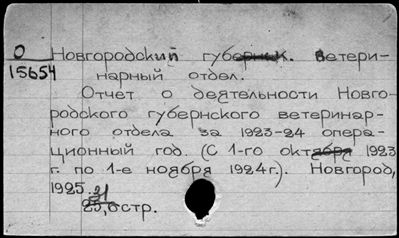 О
15654
Новгородский губернск. ветери-
нарный отдел.
Отчет о деятельности Новго-
родского губернского ветеринар-
ного отдела за 1923-24 опера-
ционный год. (С 1-го октября 1923
г. по 1-е ноября 1924г.). Новгород,
1925.
31
25,6стр.